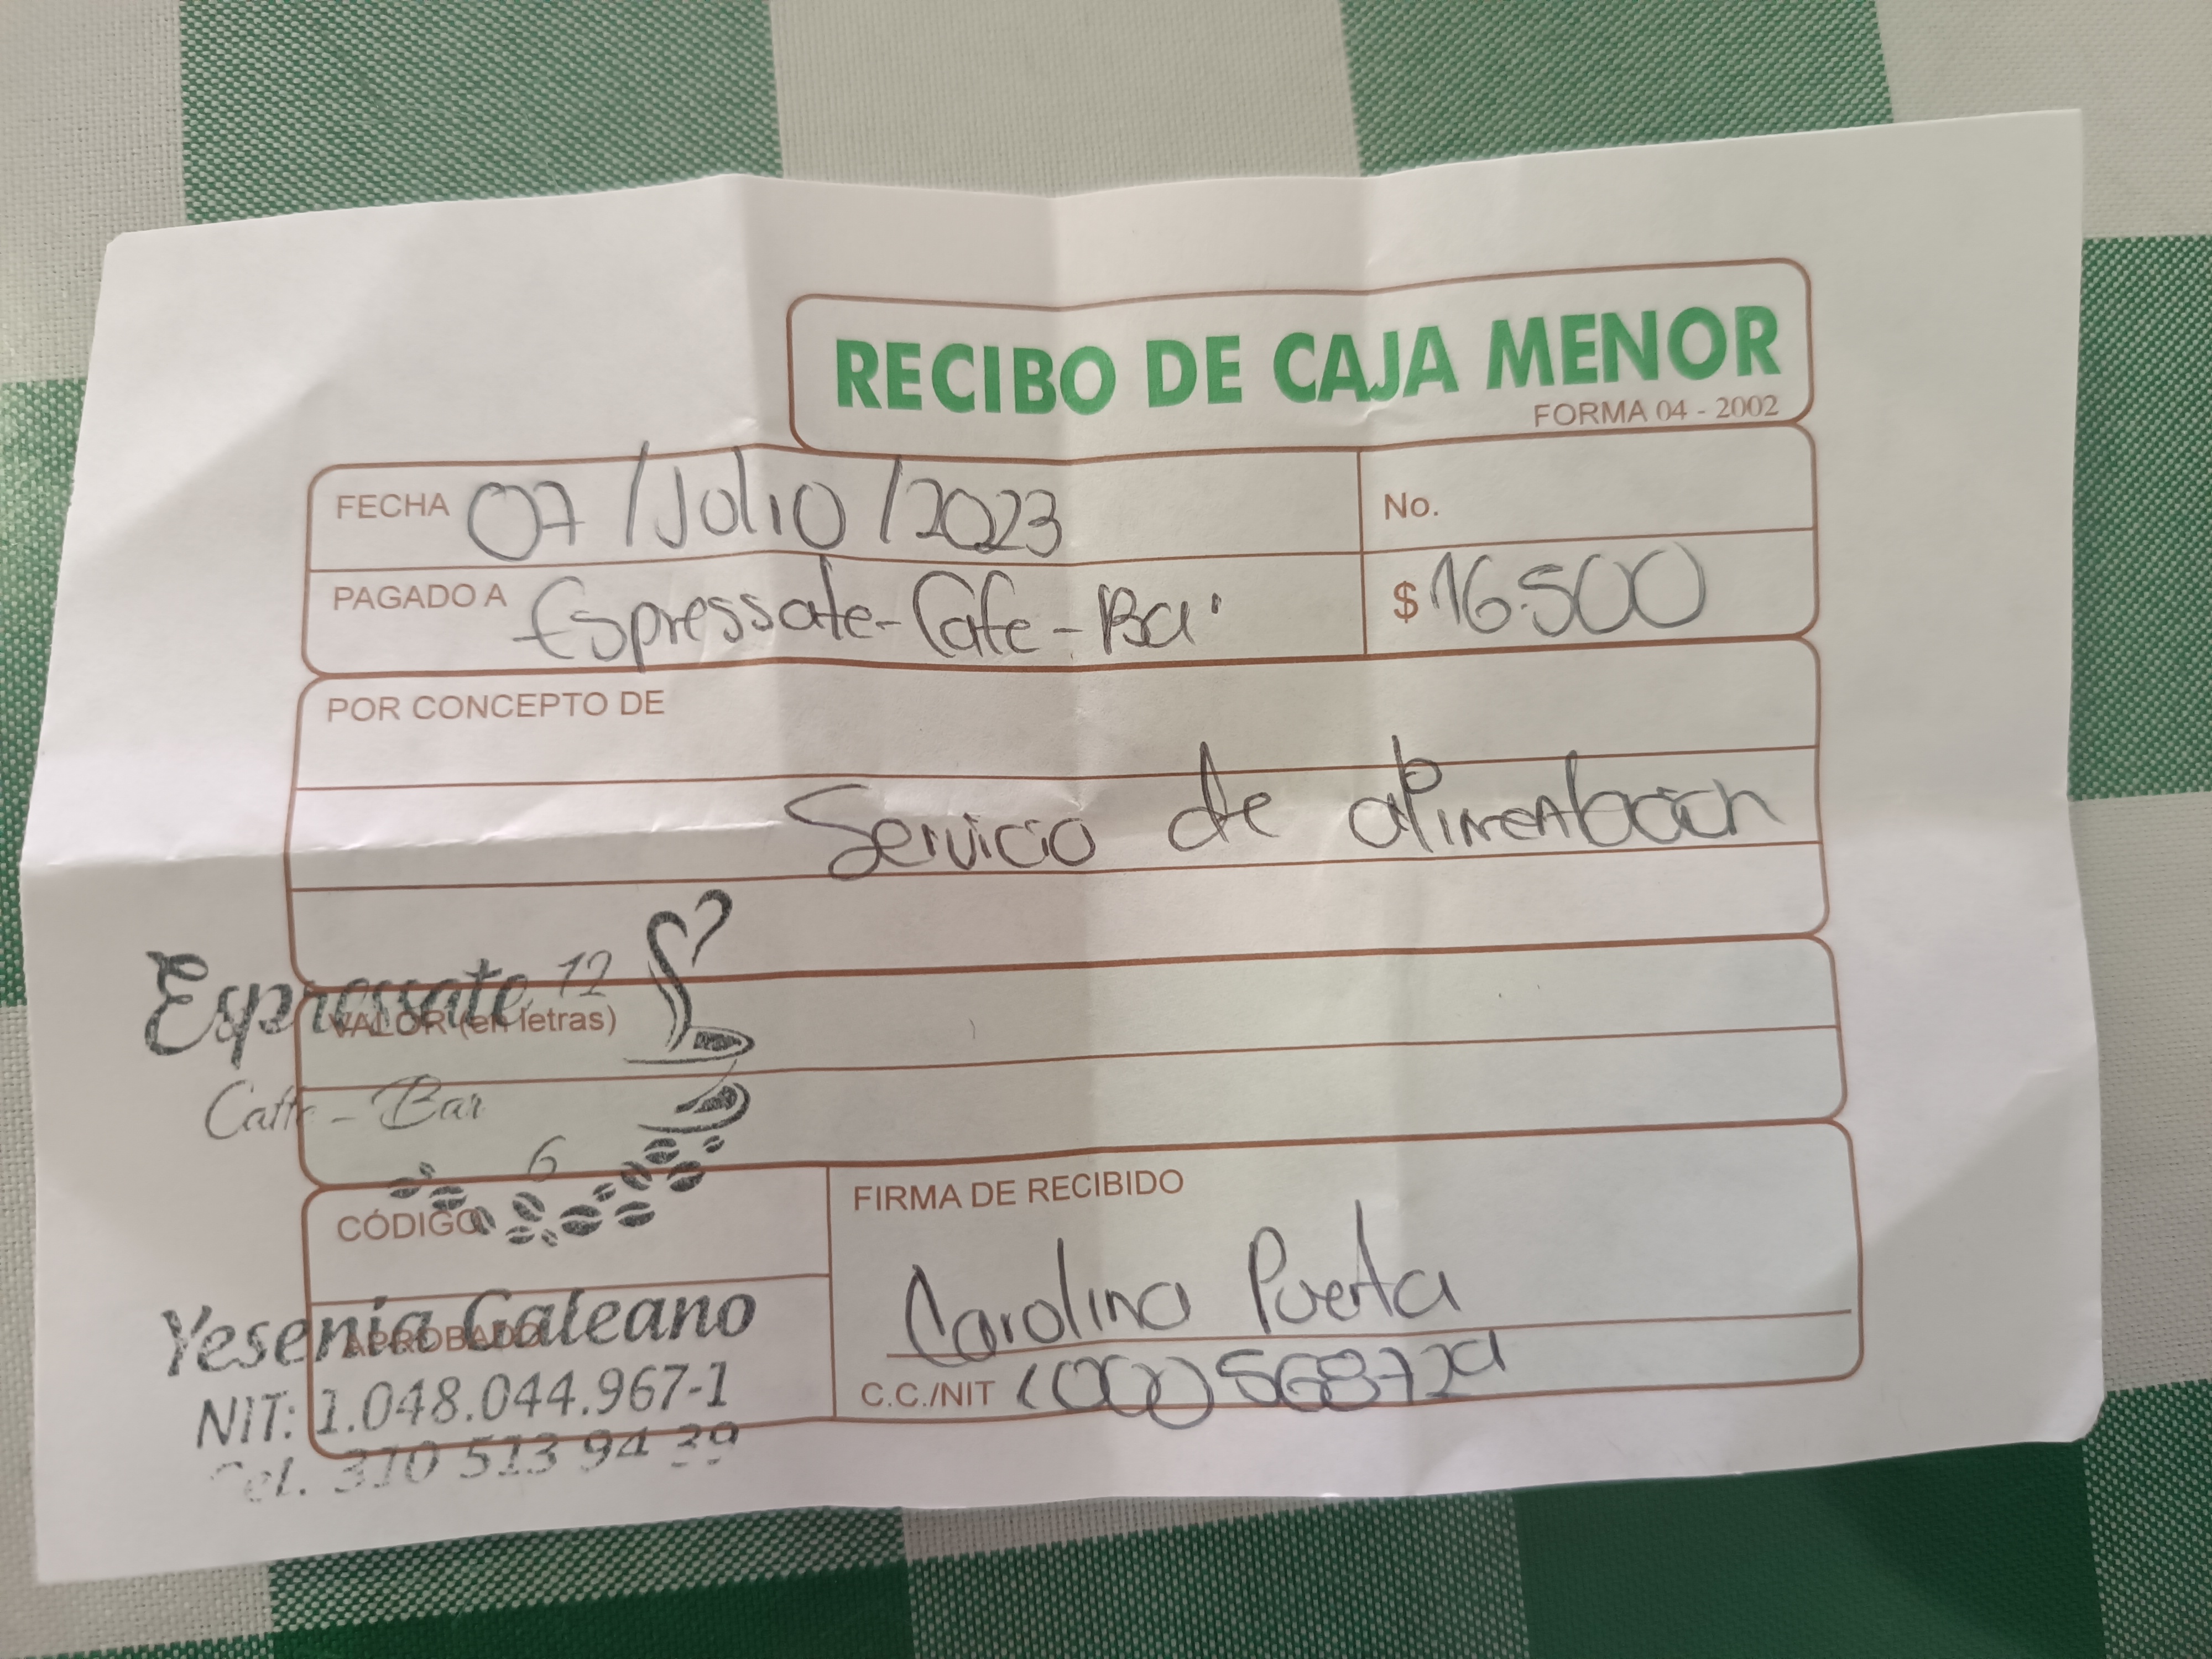 RECIBO DE CAJA MENOR
FORMA 04 - 2002
FECHA 07/Julio/2023
No.
PAGADO A Espressate-Cafe-Bar
$ 16.500
POR CONCEPTO DE
Servicio de alimentación
Espressate 12
VALOR (en letras)
Caffe - Bar
6
CÓDIGO
FIRMA DE RECIBIDO
Carolina Puerta
Yesenia Galeano
APROBADO
C.C./NIT
NIT: 1.048.044.967-1
Cel. 310 513 94 39